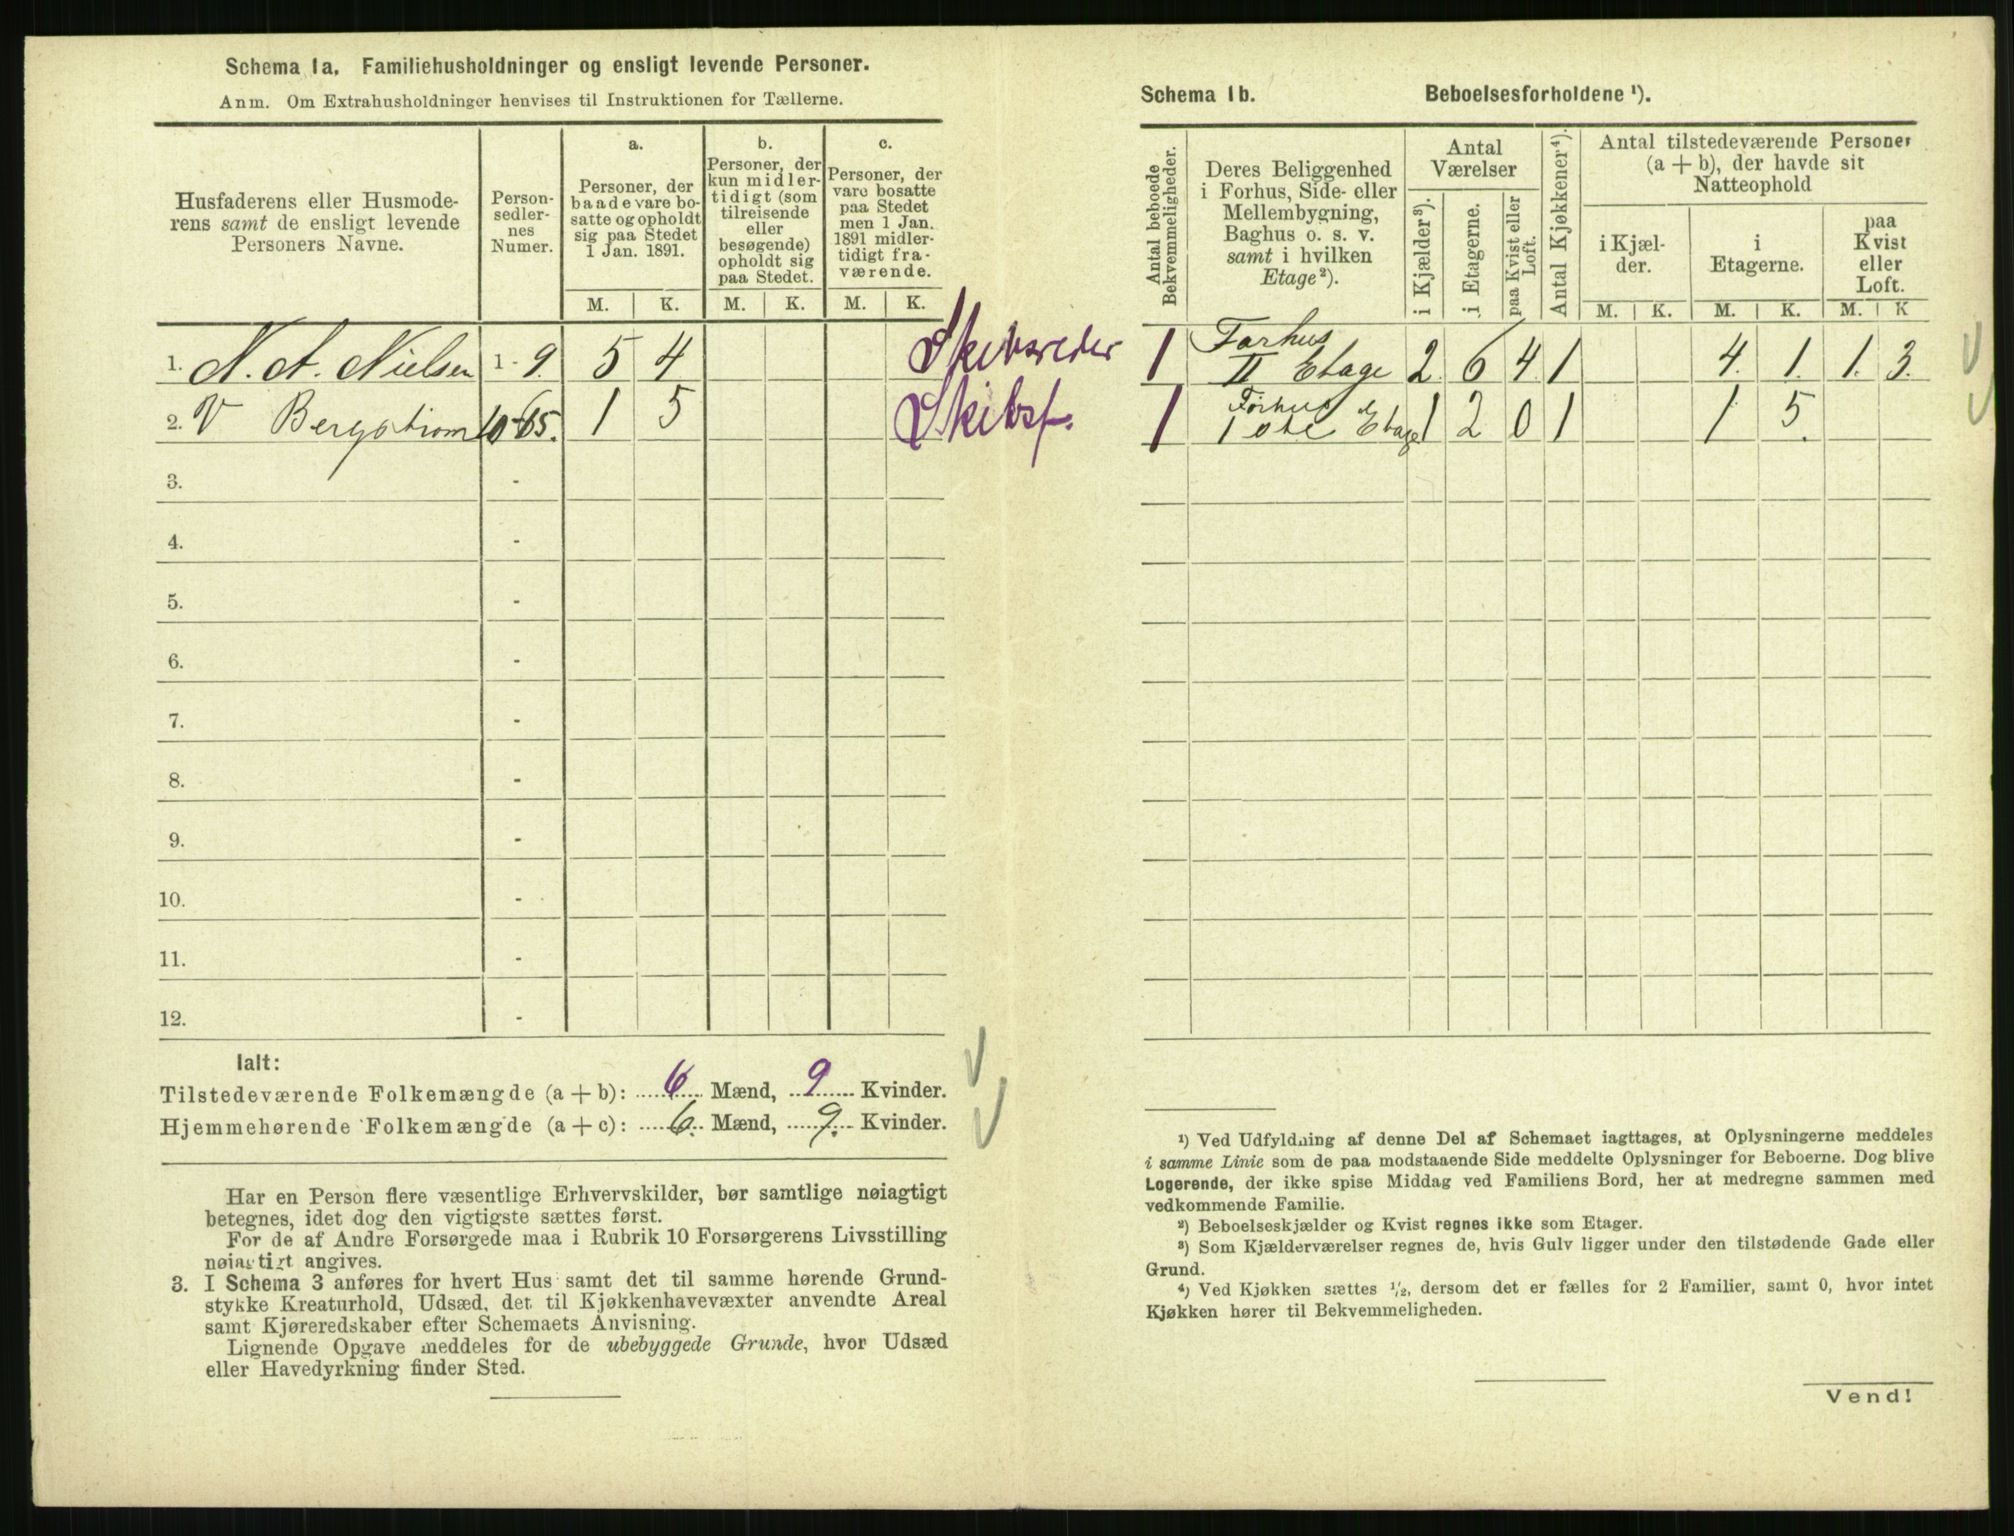 Schema 1a. Familiehusholdninger og ensligt levende Personer.
Anm. Om Extrahusholdninger henvises til Instruktionen for Tællerne.
Husfaderens eller Husmode-
rens samt de ensligt levende
Personers Navne.
Person-
sedler-
nes
Numer.
a.
Personer, der
baade vare bo-
satte og opholdt
sig paa Stedet
1 Jan. 1891.
b.
Personer, der
kun midler-
tidigt (som
tilreisende
eller
besøgende)
opholdt sig
paa Stedet.
c.
Personer, der
vare bosatte
paa Stedet
men 1 Jan.
1891 midler-
tidigt fra-
værende.
M. K. M. K. M. K.
1. N. A. Nielsen 1 - 9. 5 4 Skibsreder
2. V Bergstrom 10-65. 1 5 Skibsf.
3. -
4. -
5. -
6. -
7. -
8. -
9. -
10. -
11. -
12. -
Ialt:
Tilstedeværende Folkemængde (a + b): 6 Mænd, 9 Kvinder.
Hjemmehørende Folkemængde (a + c): 6. Mænd, 9. Kvinder.
Har en Person flere væsentlige Erhvervskilder, bør samtlige nøiagtigt
betegnes, idet dog den vigtigste sættes først.
For de af Andre Forsørgede maa i Rubrik 10 Forsørgerens Livsstilling
nøiagtigt angives.
3. I Schema 3 anføres for hvert Hus samt det til samme hørende Grund-
stykke Kreaturhold, Udsæd, det til Kjøkkenhavevæxter anvendte Areal
samt Kjøreredskaber efter Schemaets Anvisning.
Lignende Opgave meddeles for de ubebyggede Grunde, hvor Udsæd
eller Havedyrkning finder Sted.
Schema 1b. Beboelsesforholdene ¹).
Antal beboede
Bekvemmeligheder.
Deres Beliggenhed
i Forhus, Side- eller
Mellembygning,
Baghus o. s. v.
samt i hvilken
Etage²).
Antal
Værelser
i Kjælder³).
i Etagerne.
paa Kvist eller
Loft.
Antal Kjøkkener⁴).
Antal tilstedeværende Personer
(a + b), der havde sit
Natteophold
i Kjæl-
der.
i
Etagerne.
paa
Kvist
eller
Loft.
M. K. M. K. M. K
1 Forhus
II Etage 2 6 4 1 4. 1. 1. 3.
1 Forhus
1ste Etage 1 2 0 1 1 5.
¹) Ved Udfyldning af denne Del af Schemaet iagttages, at Oplysningerne meddeles
i samme Linie som de paa modstaaende Side meddelte Oplysninger for Beboerne. Dog blive
Logerende, der ikke spise Middag ved Familiens Bord, her at medregne sammen med
vedkommende Familie.
²) Beboelseskjælder og Kvist regnes ikke som Etager.
³) Som Kjælderværelser regnes de, hvis Gulv ligger under den tilstødende Gade eller
Grund.
⁴) Ved Kjøkken sættes ½, dersom det er fælles for 2 Familier, samt 0, hvor intet
Kjøkken hører til Bekvemmeligheden.
Vend!